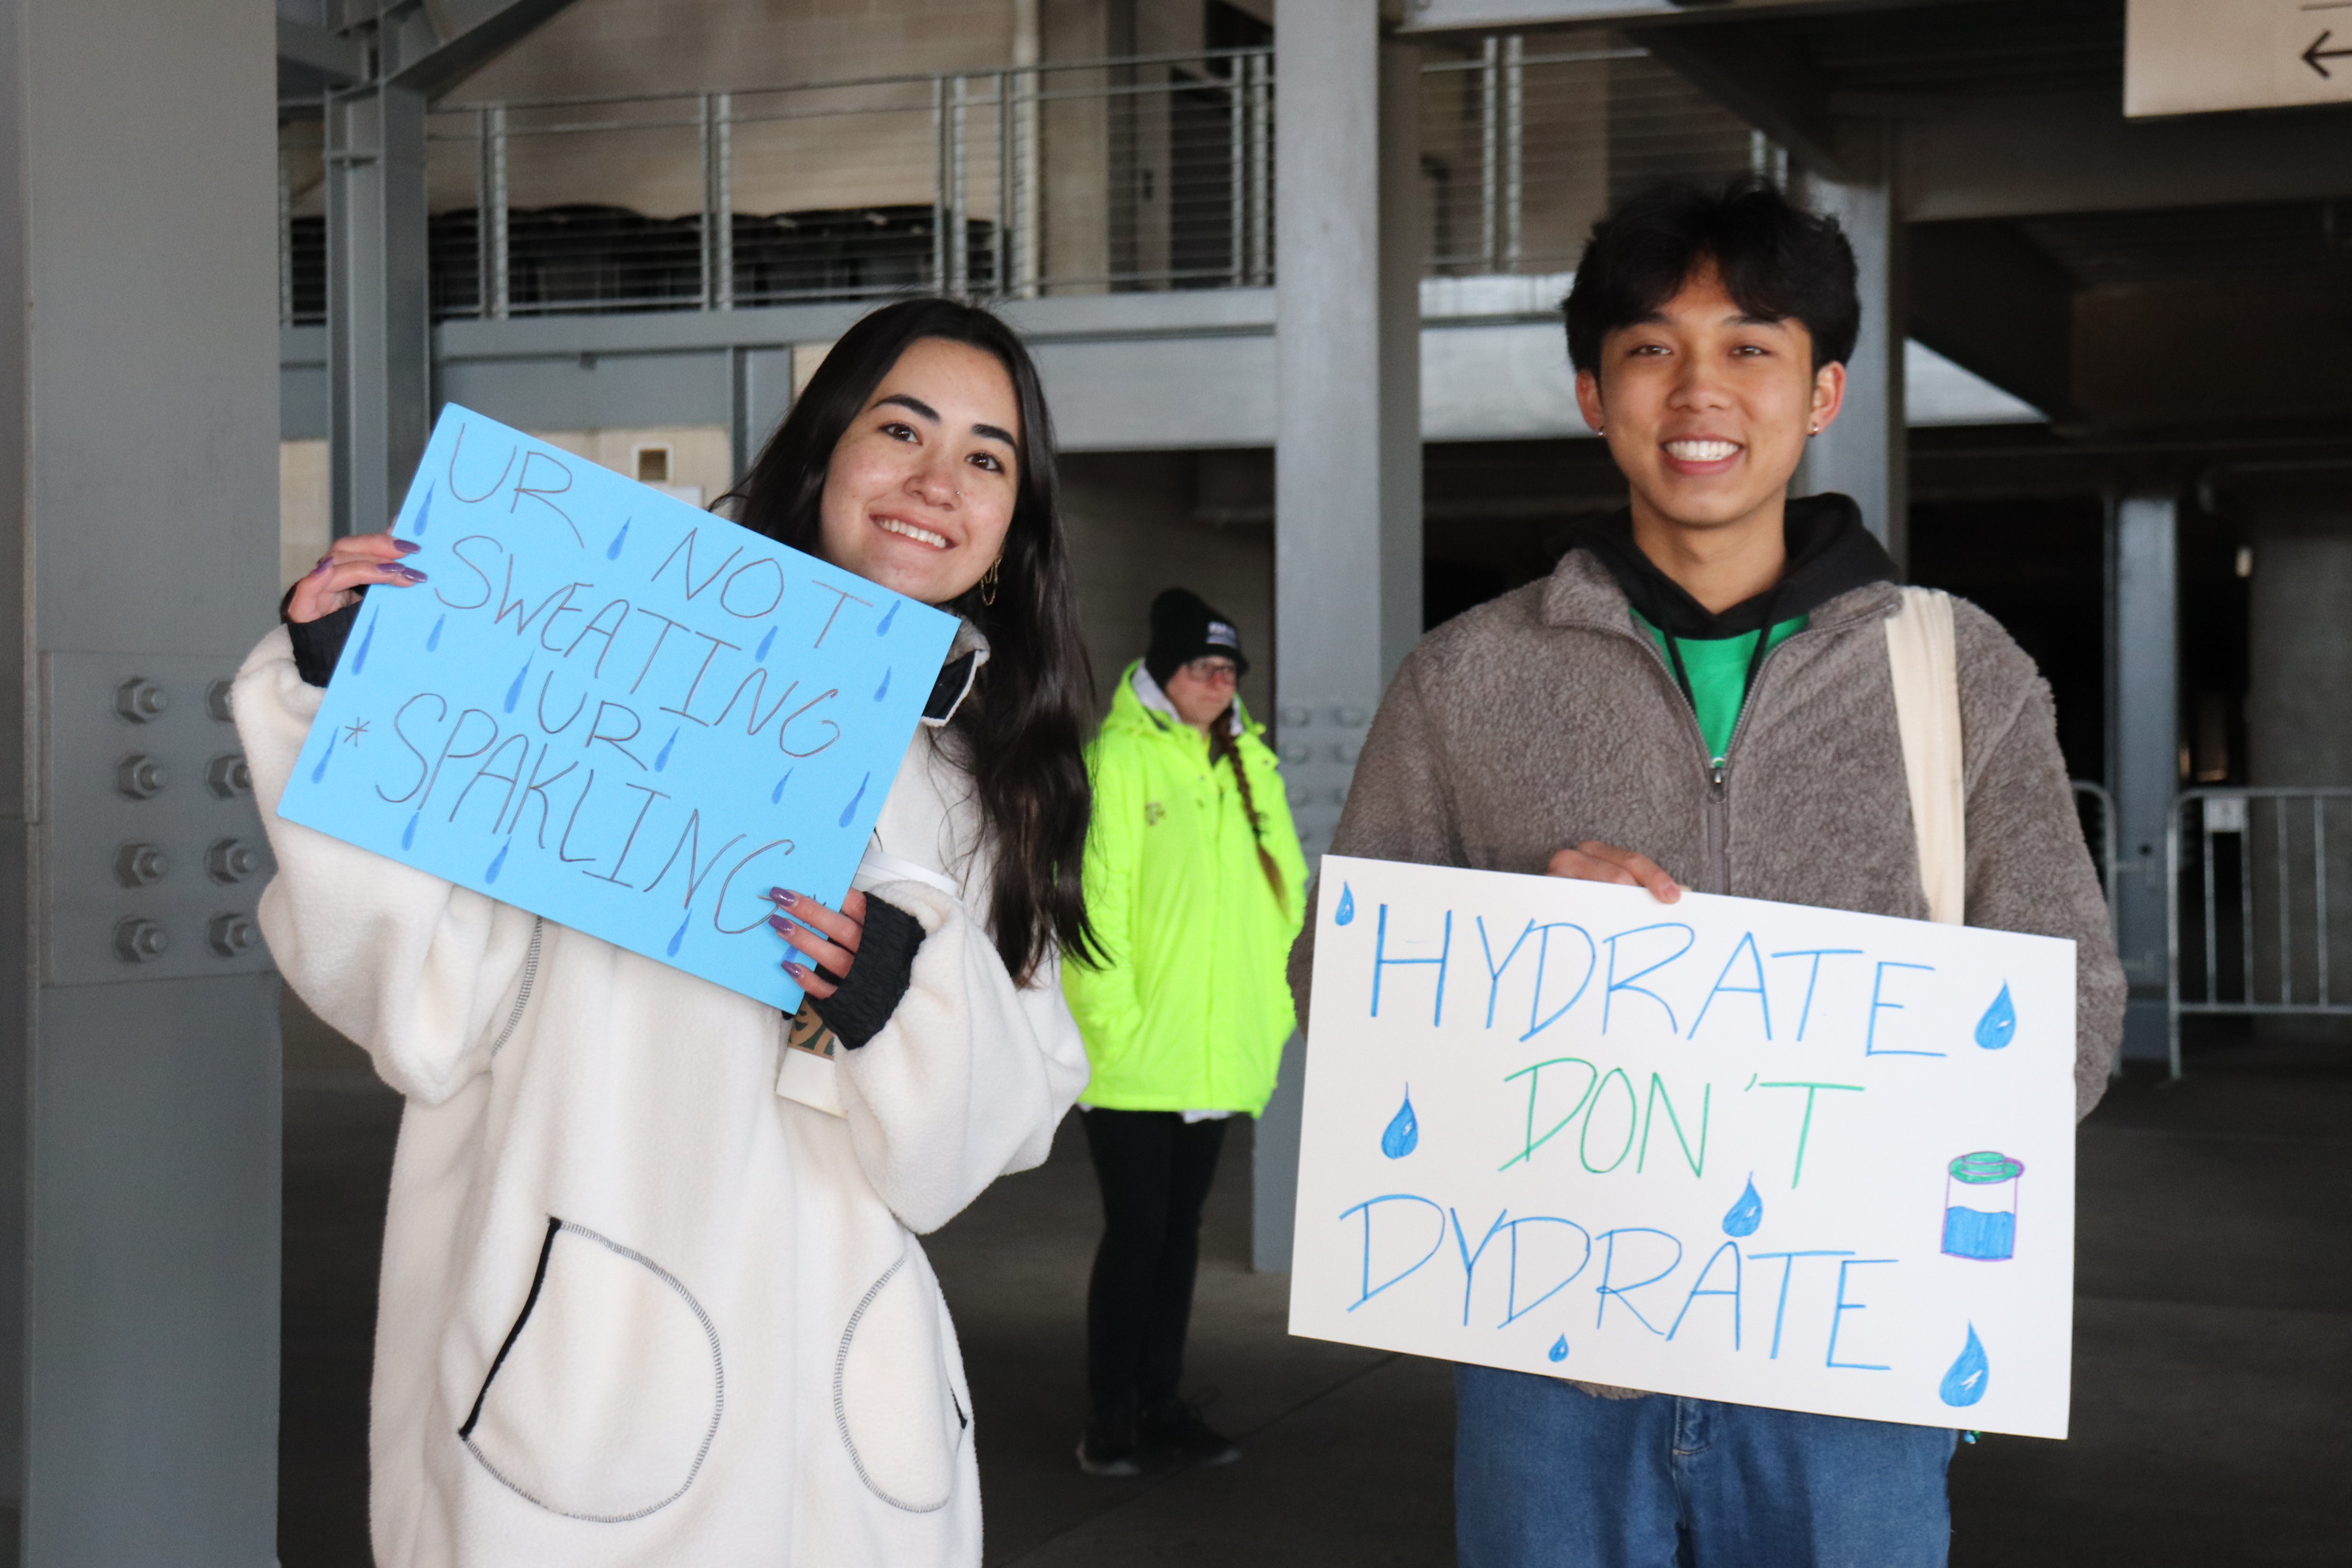 UR NOT
SWEATING
UR
*SPAKLING*
HYDRATE
DON'T
DYDRATE